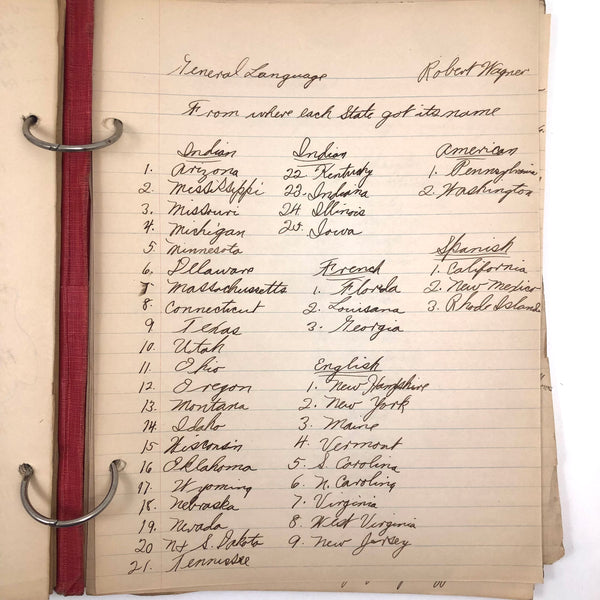 General Language Robert Wagner
From where each State got its name
Indian
1. Arizona
2. Mississippi
3. Missouri
4. Michigan
5 Minnesota
6. Dllaware
7. Massachussetts
8. Connecticut
9 Texas
10. Utah
11. Ohio
12. Oregon
13. Montana
14. Idaho
15 Wisconsin
16 Oklahoma
17. Wyoming
18. Nebraska
19. Nevada
20 N+ S. Dakota
21. Tennissee
Indian
22. Kentucky
23. Indiana
24. Illinois
25. Iowa
French
1. Florida
2. Louisana
3. Georgia
English
1. New Hampshire
2. New York
3. Maine
4. Vermont
5. S. Carolina
6. N. Carolina
7. Virginia
8. West Virginia
9. New Jersey
American
1. Pennsylvania
2. Washington
Spanish
1. California
2. New Mexico
3. Rhode Island